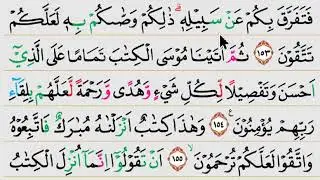 فَتَفَرَّقَ بِكُمْ عَنْ سَبِيْلِهٖۗ ذٰلِكُمْ وَصّٰىكُمْ بِهٖ لَعَلَّكُمْ
تَتَّقُوْنَ ﴿١٥٣﴾ ثُمَّ اٰتَيْنَا مُوْسَى الْكِتٰبَ تَمَامًا عَلَى الَّذِيْٓ
اَحْسَنَ وَتَفْصِيْلًا لِّكُلِّ شَيْءٍ وَّهُدًى وَّرَحْمَةً لَّعَلَّهُمْ بِلِقَاۤءِ
رَبِّهِمْ يُؤْمِنُوْنَ ﴿١٥٤﴾ وَهٰذَا كِتٰبٌ اَنْزَلْنٰهُ مُبٰرَكٌ فَاتَّبِعُوْهُ
وَاتَّقُوْا لَعَلَّكُمْ تُرْحَمُوْنَ ﴿١٥٥﴾ اَنْ تَقُوْلُوْٓا اِنَّمَآ اُنْزِلَ الْكِتٰبُ